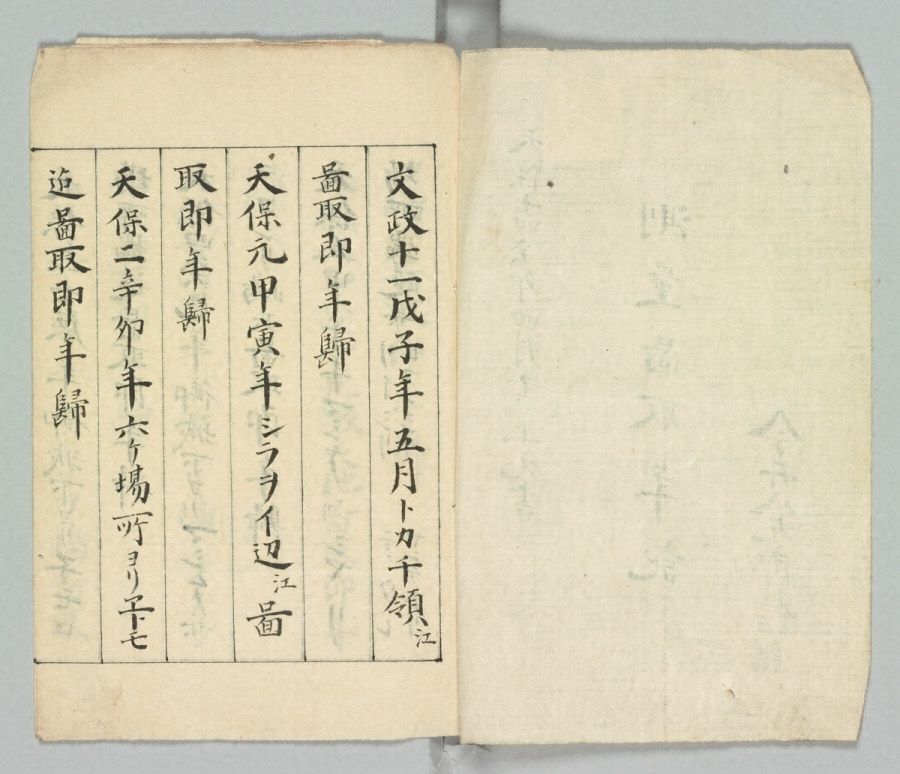 文政十一戊子年五月トカチ領江
啚取即年歸
天保元甲寅年シラヲイ辺江啚
取即年歸
天保二辛卯年六ケ場所ヨリ子トモ
迠啚取即年歸